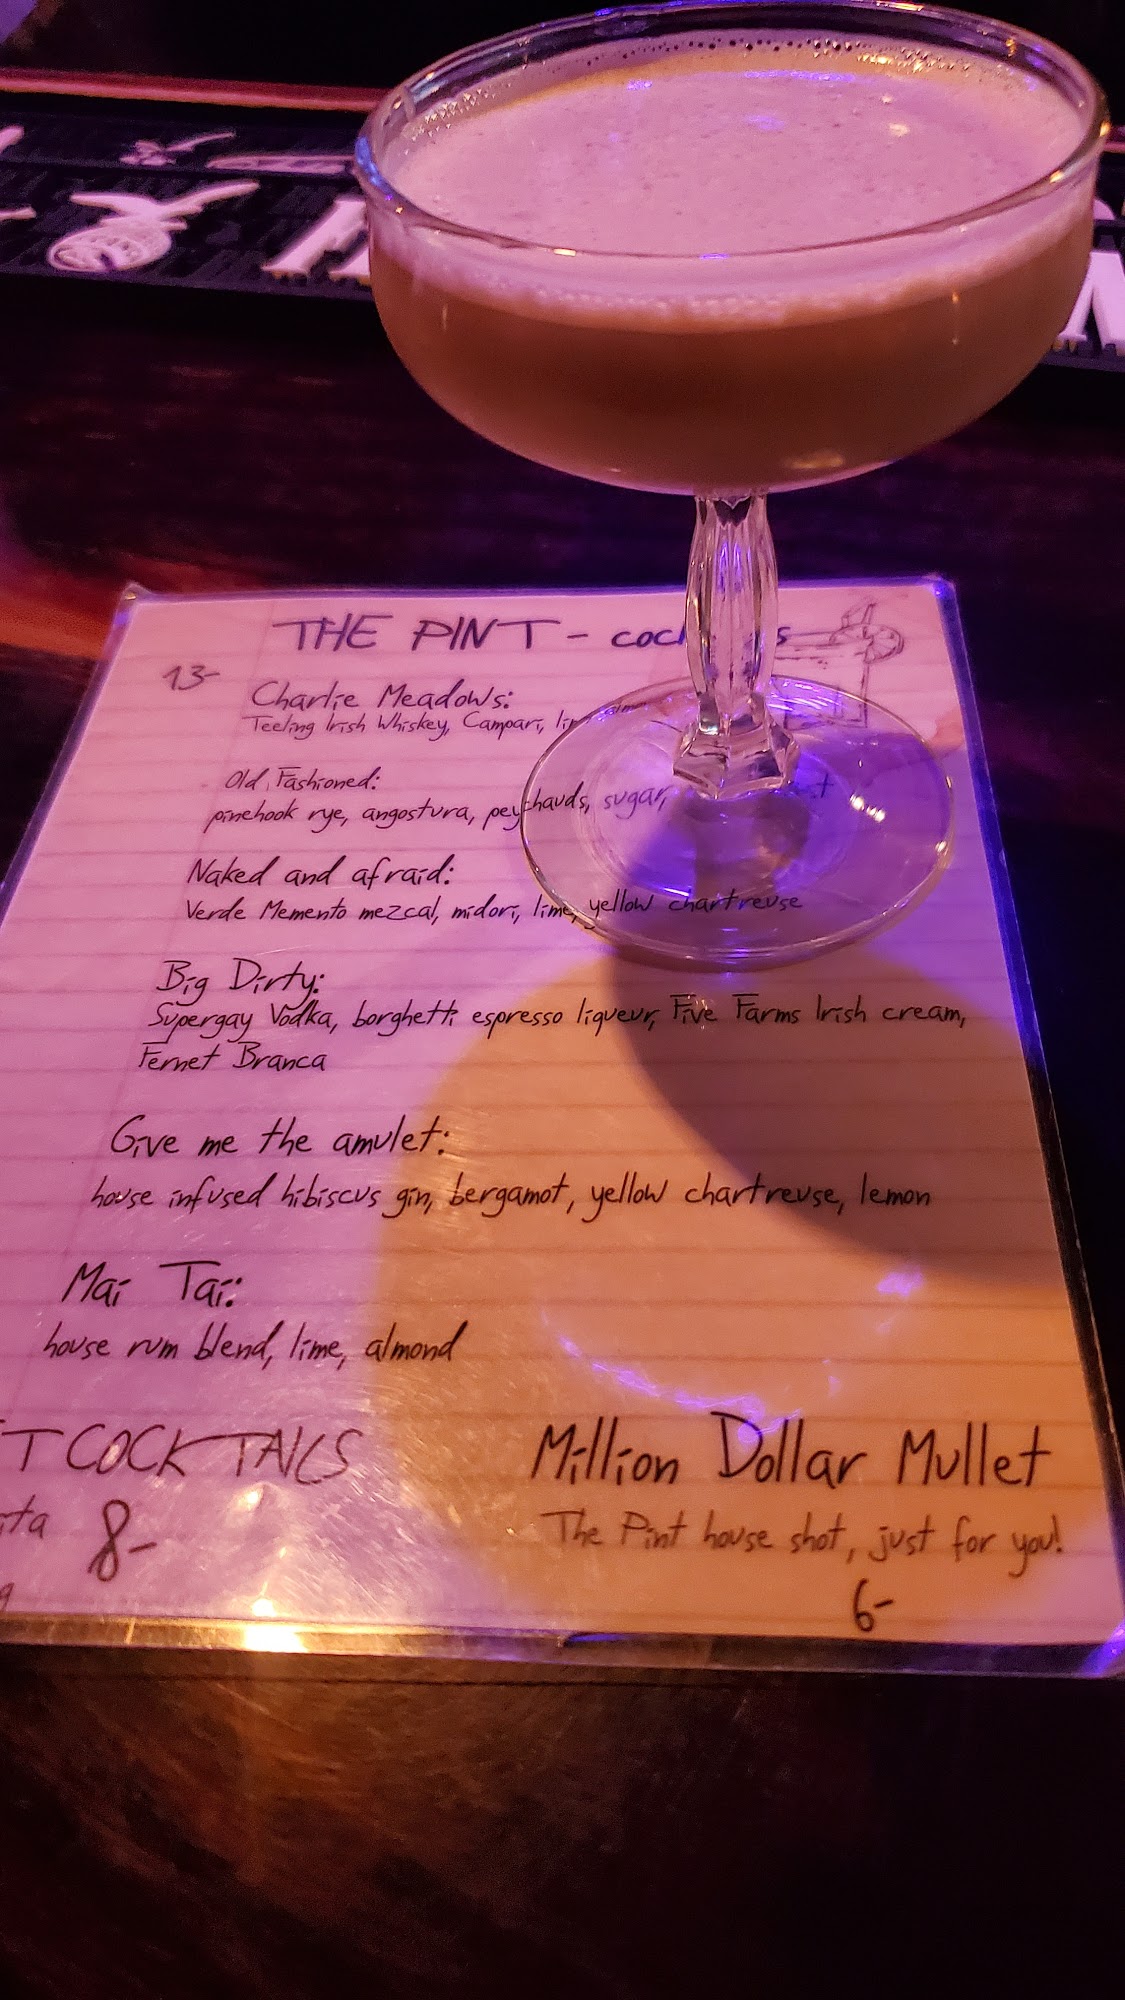 THE PINT - coc s
13-
Charlie Meadows:
Teeling Irish Whiskey, Campari,
Old Fashioned:
pinehook rye, angostura, peychauds, sugar,
Naked and afraid:
Verde Memento mezcal, midori, lime, yellow chartreuse
Big Dirty:
Supergay Vodka, borghetti espresso liqueur, Five Farms Irish cream,
Fernet Branca
Give me the amulet:
house infused hibiscus gin, bergamot, yellow chartreuse, lemon
Mai Tai:
house rum blend, lime, almond
T COCKTAILS
8-
Million Dollar Mullet
The Pint house shot, just for you!
6-